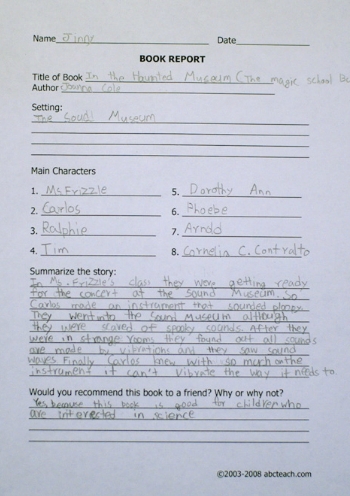 Name Jinny Date
BOOK REPORT
Title of Book In the Haunted Museum (The magic school Bu
Author Joanna Cole
Setting:
The Soud! Museum
Main Characters
1. Ms.Frizzle 5. Dorothy Ann
2. Carlos 6. Phoebe
3. Ralphie 7. Arnold
4. Tim 8. Cornelia C. Contralto
Summarize the story:
In Ms. Frizzle's class they were getting ready
for the concert at the Sound Museum. So
Carlos made an instrument that sounded
They went into the Sound Museum although
they were scared of spooky sounds. After they
were in strange rooms they found out all sounds
are made by vibrations and they saw sound
waves Finally Carlos knew with so much on the
instrument it can't vibrate the way it needs to.
Would you recommend this book to a friend? Why or why not?
Yes because this book is good for children who
are interected in science
©2003-2008 abcteach.com